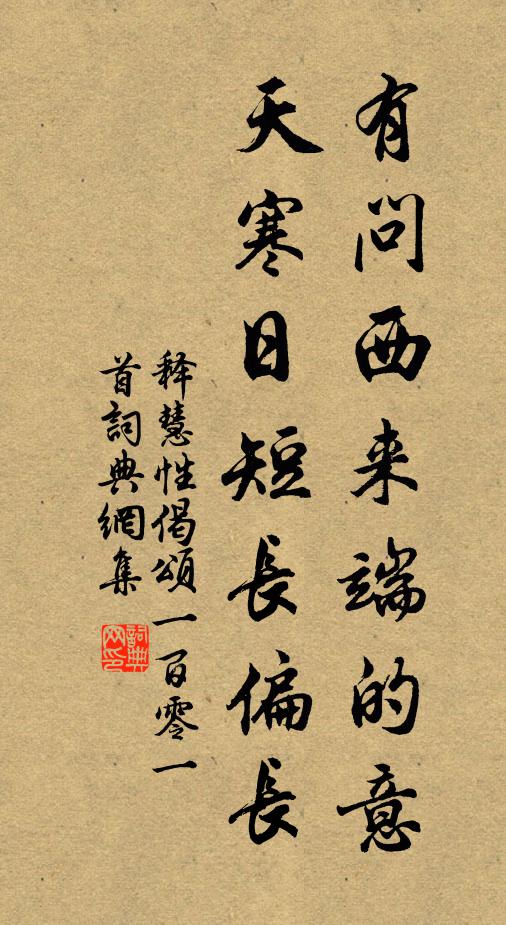 有問西来端的意
天寒日短長偏長
释慧性偈頌一百零一
首詞典網集
詞典网印